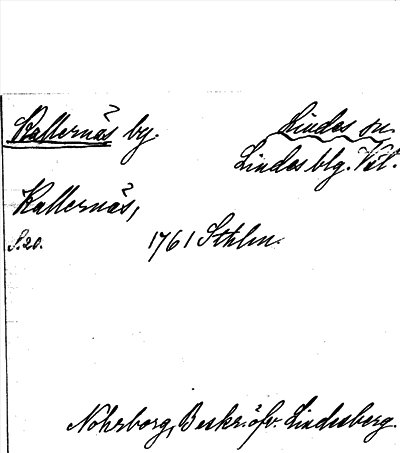 Kallernäs by. Lindes sn.
Lindes blg. Vstl.
Kallernäs,
S. 20. 1761 Sthlm.
Nohrborg, Beskr. öfv. Lindesberg.